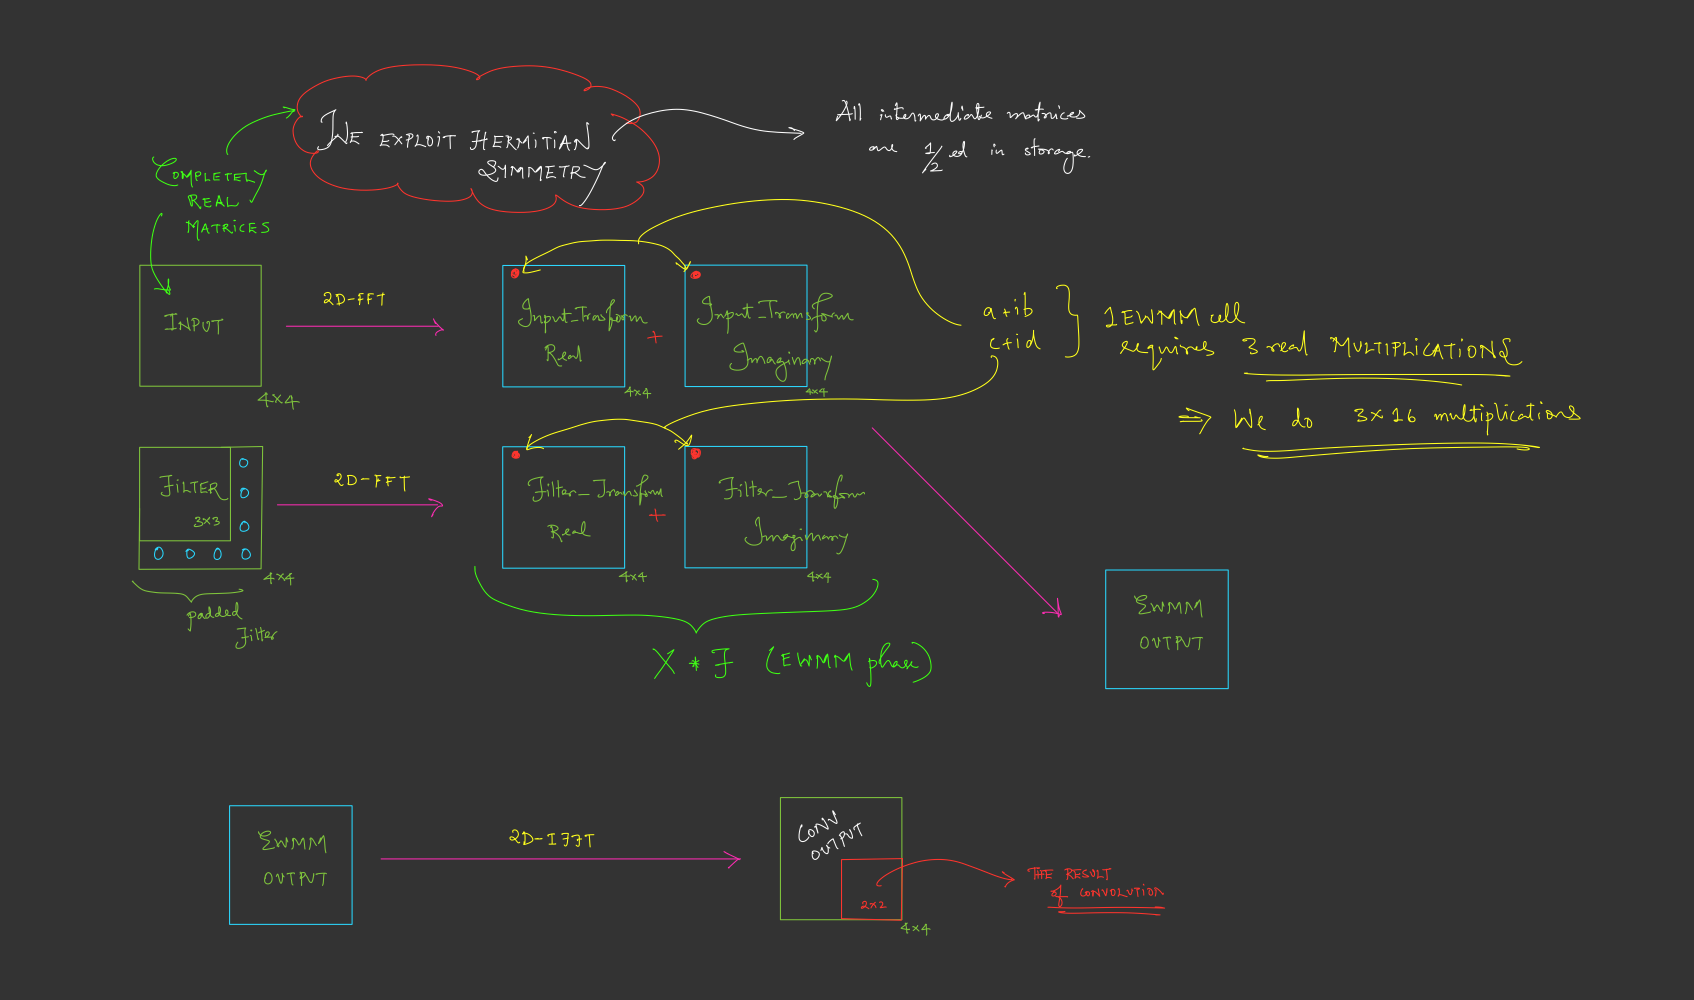 WE EXPLOIT HERMITIAN
SYMMETRY
All intermediate matrices
are 1/2 ed in storage.
COMPLETELY
REAL
MATRICES
INPUT
4x4
2D-FFT
Input_Trasform
Real
4x4
+
Input_Transform
Imaginary
4x4
a+ib
c+id
1EWMM cell
requires 3 real MULTIPLICATIONS
⇒ We do 3x16 multiplications
FILTER
3x3
0
0
0
0 0 0 0
4x4
padded
Filter
2D-FFT
Filter_Transform
Real
4x4
+
Filter_Transform
Imaginary
4x4
X * F (EWMM phase)
EWMM
OUTPUT
EWMM
OUTPUT
2D-IFFT
CONV
OUTPUT
2x2
4x4
THE RESULT
of CONVOLUTION